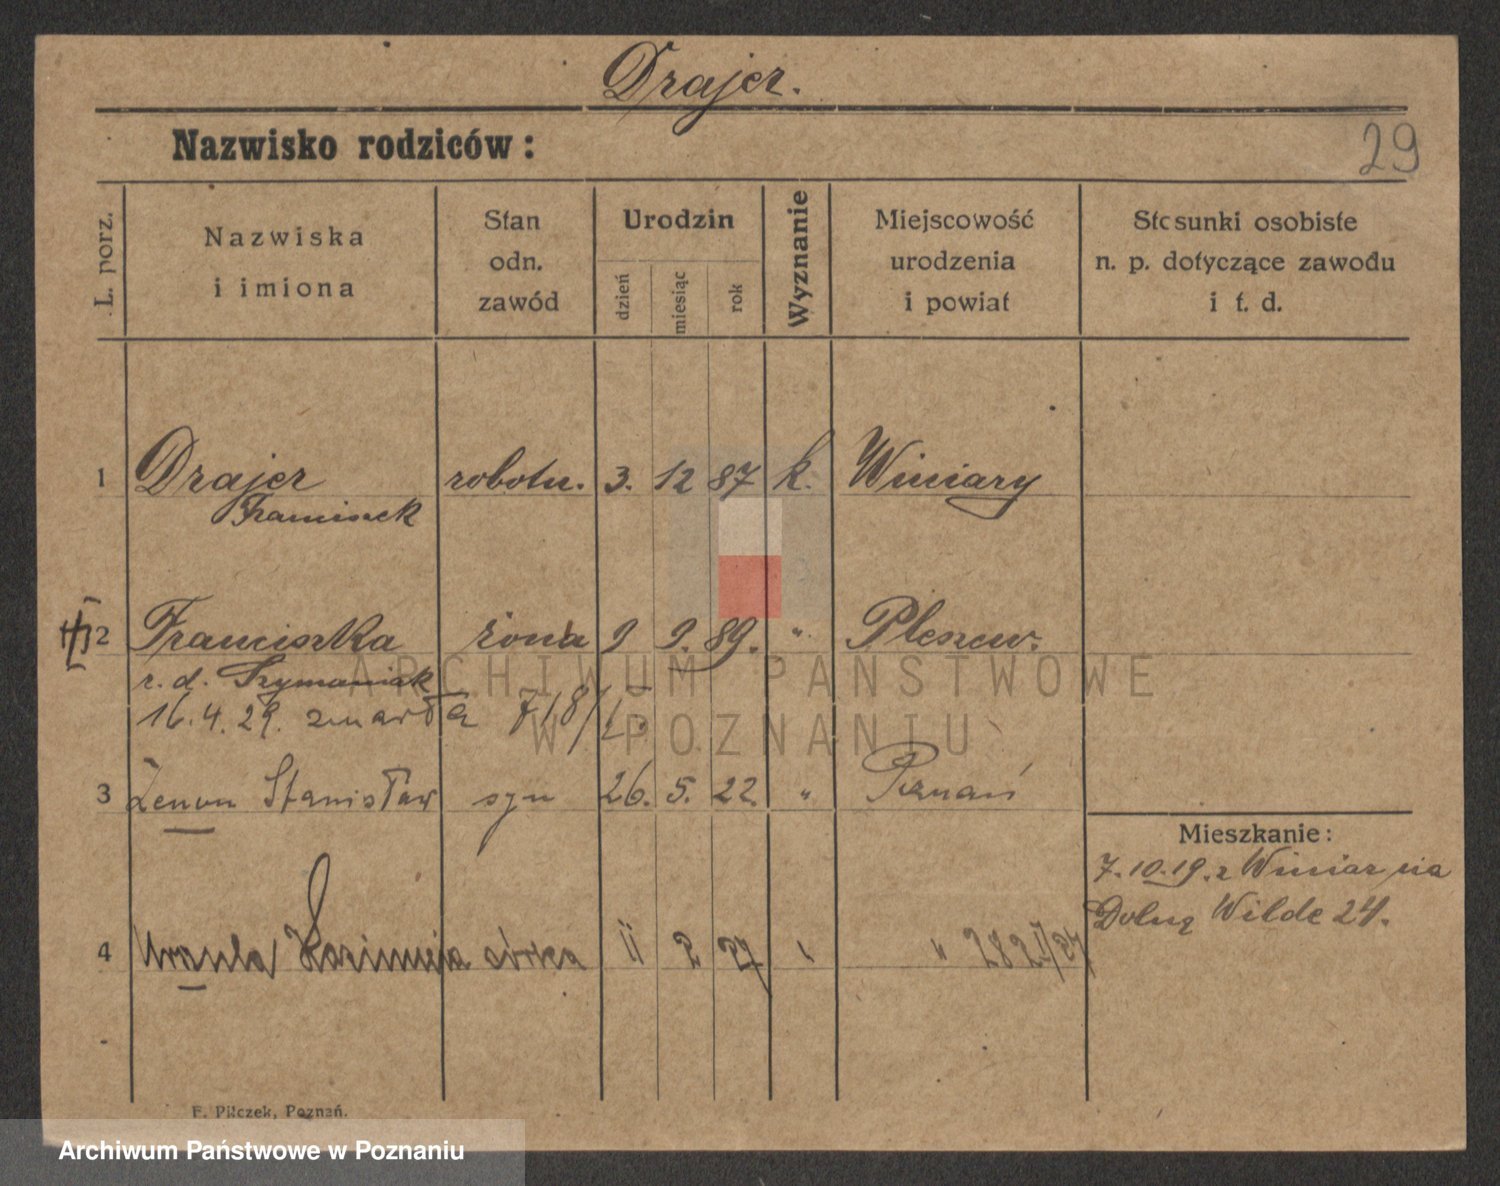 Drajer.
Nazwisko rodziców:
29
L. porz.
Nazwiska
i imiona
Stan
odn.
zawód
Urodzin
dzień
miesiąc
rok
Wyznanie
Miejscowość
urodzenia
i powiat
Stosunki osobiste
n. p. dotyczące zawodu
i t. d.
1 Drajer robotn. 3. 12 87 k. Winiary
Franciszek
2 Franciszka żona 9 9. 89. " Pleszew.
r. d. Szymaniak
16.4.29. zmarła 718/
3 Zenon Stanisław syn 26. 5. 22. " Poznań
Mieszkanie:
7.10.19. z Winiar na
Dolną Wilde 24.
4 Urszula Kazimiera córka 11 2 27 " "
F. Pilczek, Poznań.
ARCHIWUM PAŃSTWOWE
W POZNANIU
Archiwum Państwowe w Poznaniu